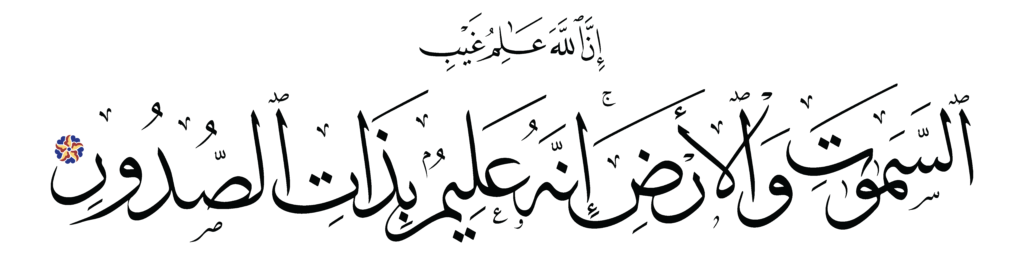 إِنَّ ٱللَّهَ عَـٰلِمُ غَيْبِ
ٱلسَّمَـٰوَٰتِ وَٱلْأَرْضِ ۚ إِنَّهُۥ عَلِيمٌۢ بِذَاتِ ٱلصُّدُورِ